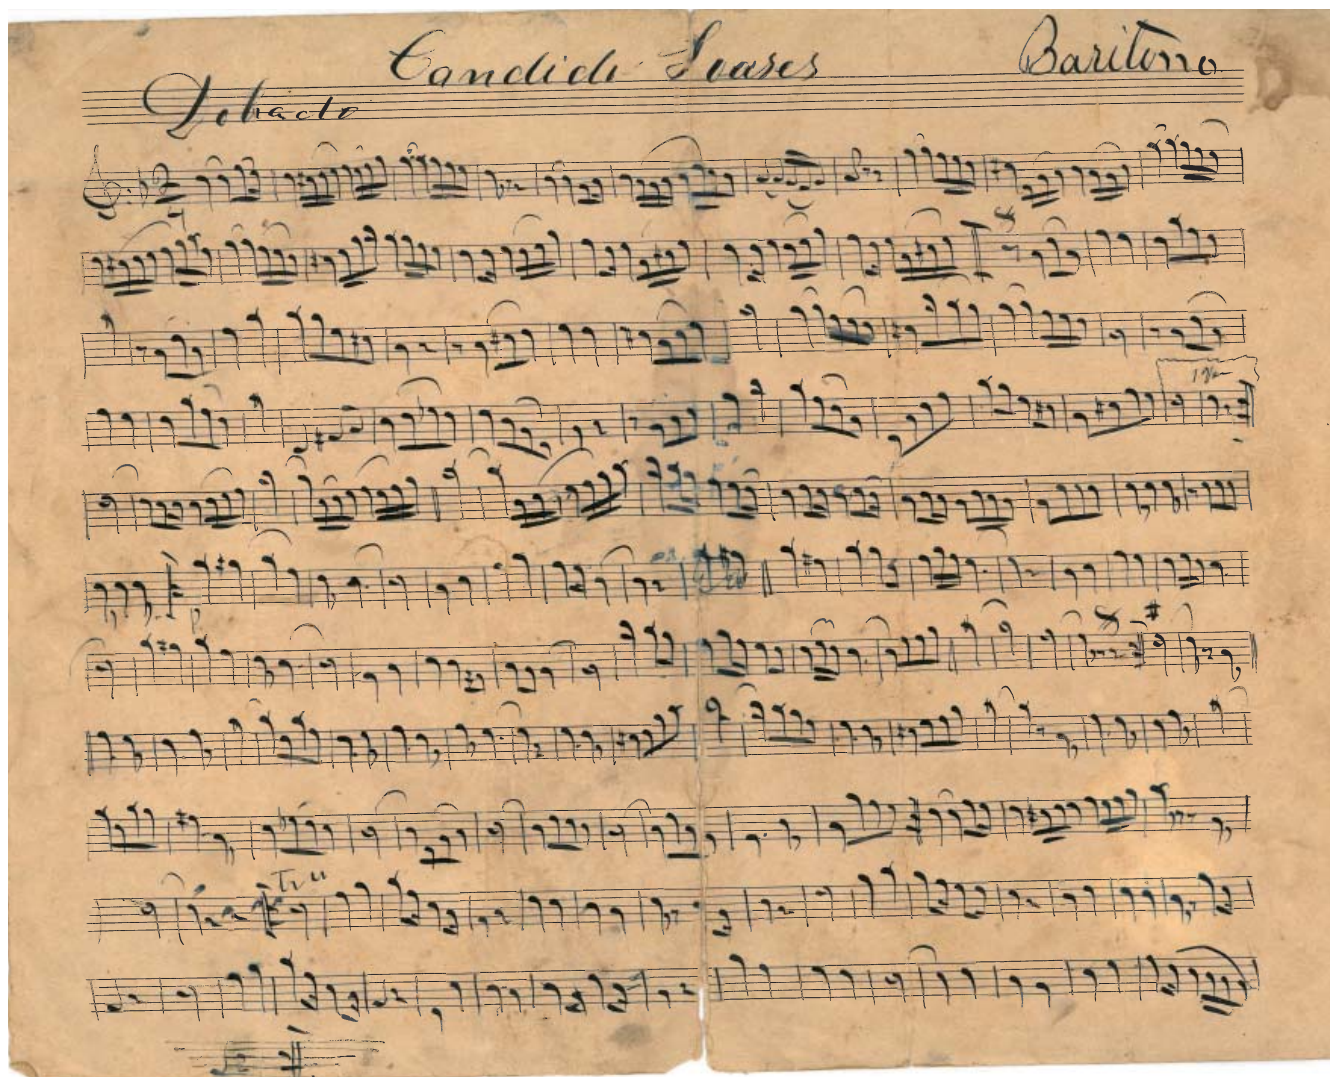 Candido Soares Baritono
Dobrado
1ª
Trio